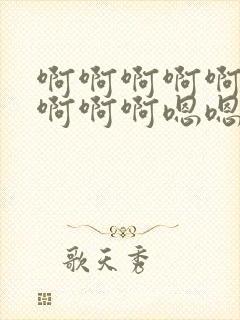 啊啊啊啊啊
啊啊啊嗯嗯
歌天秀